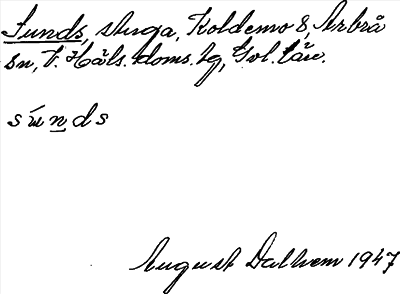 Sunds, stuga, Koldemo 8, Arbrå
sn, V. Häls. doms. tg, Gvl. län.
sùnds
August Dalhem 1947